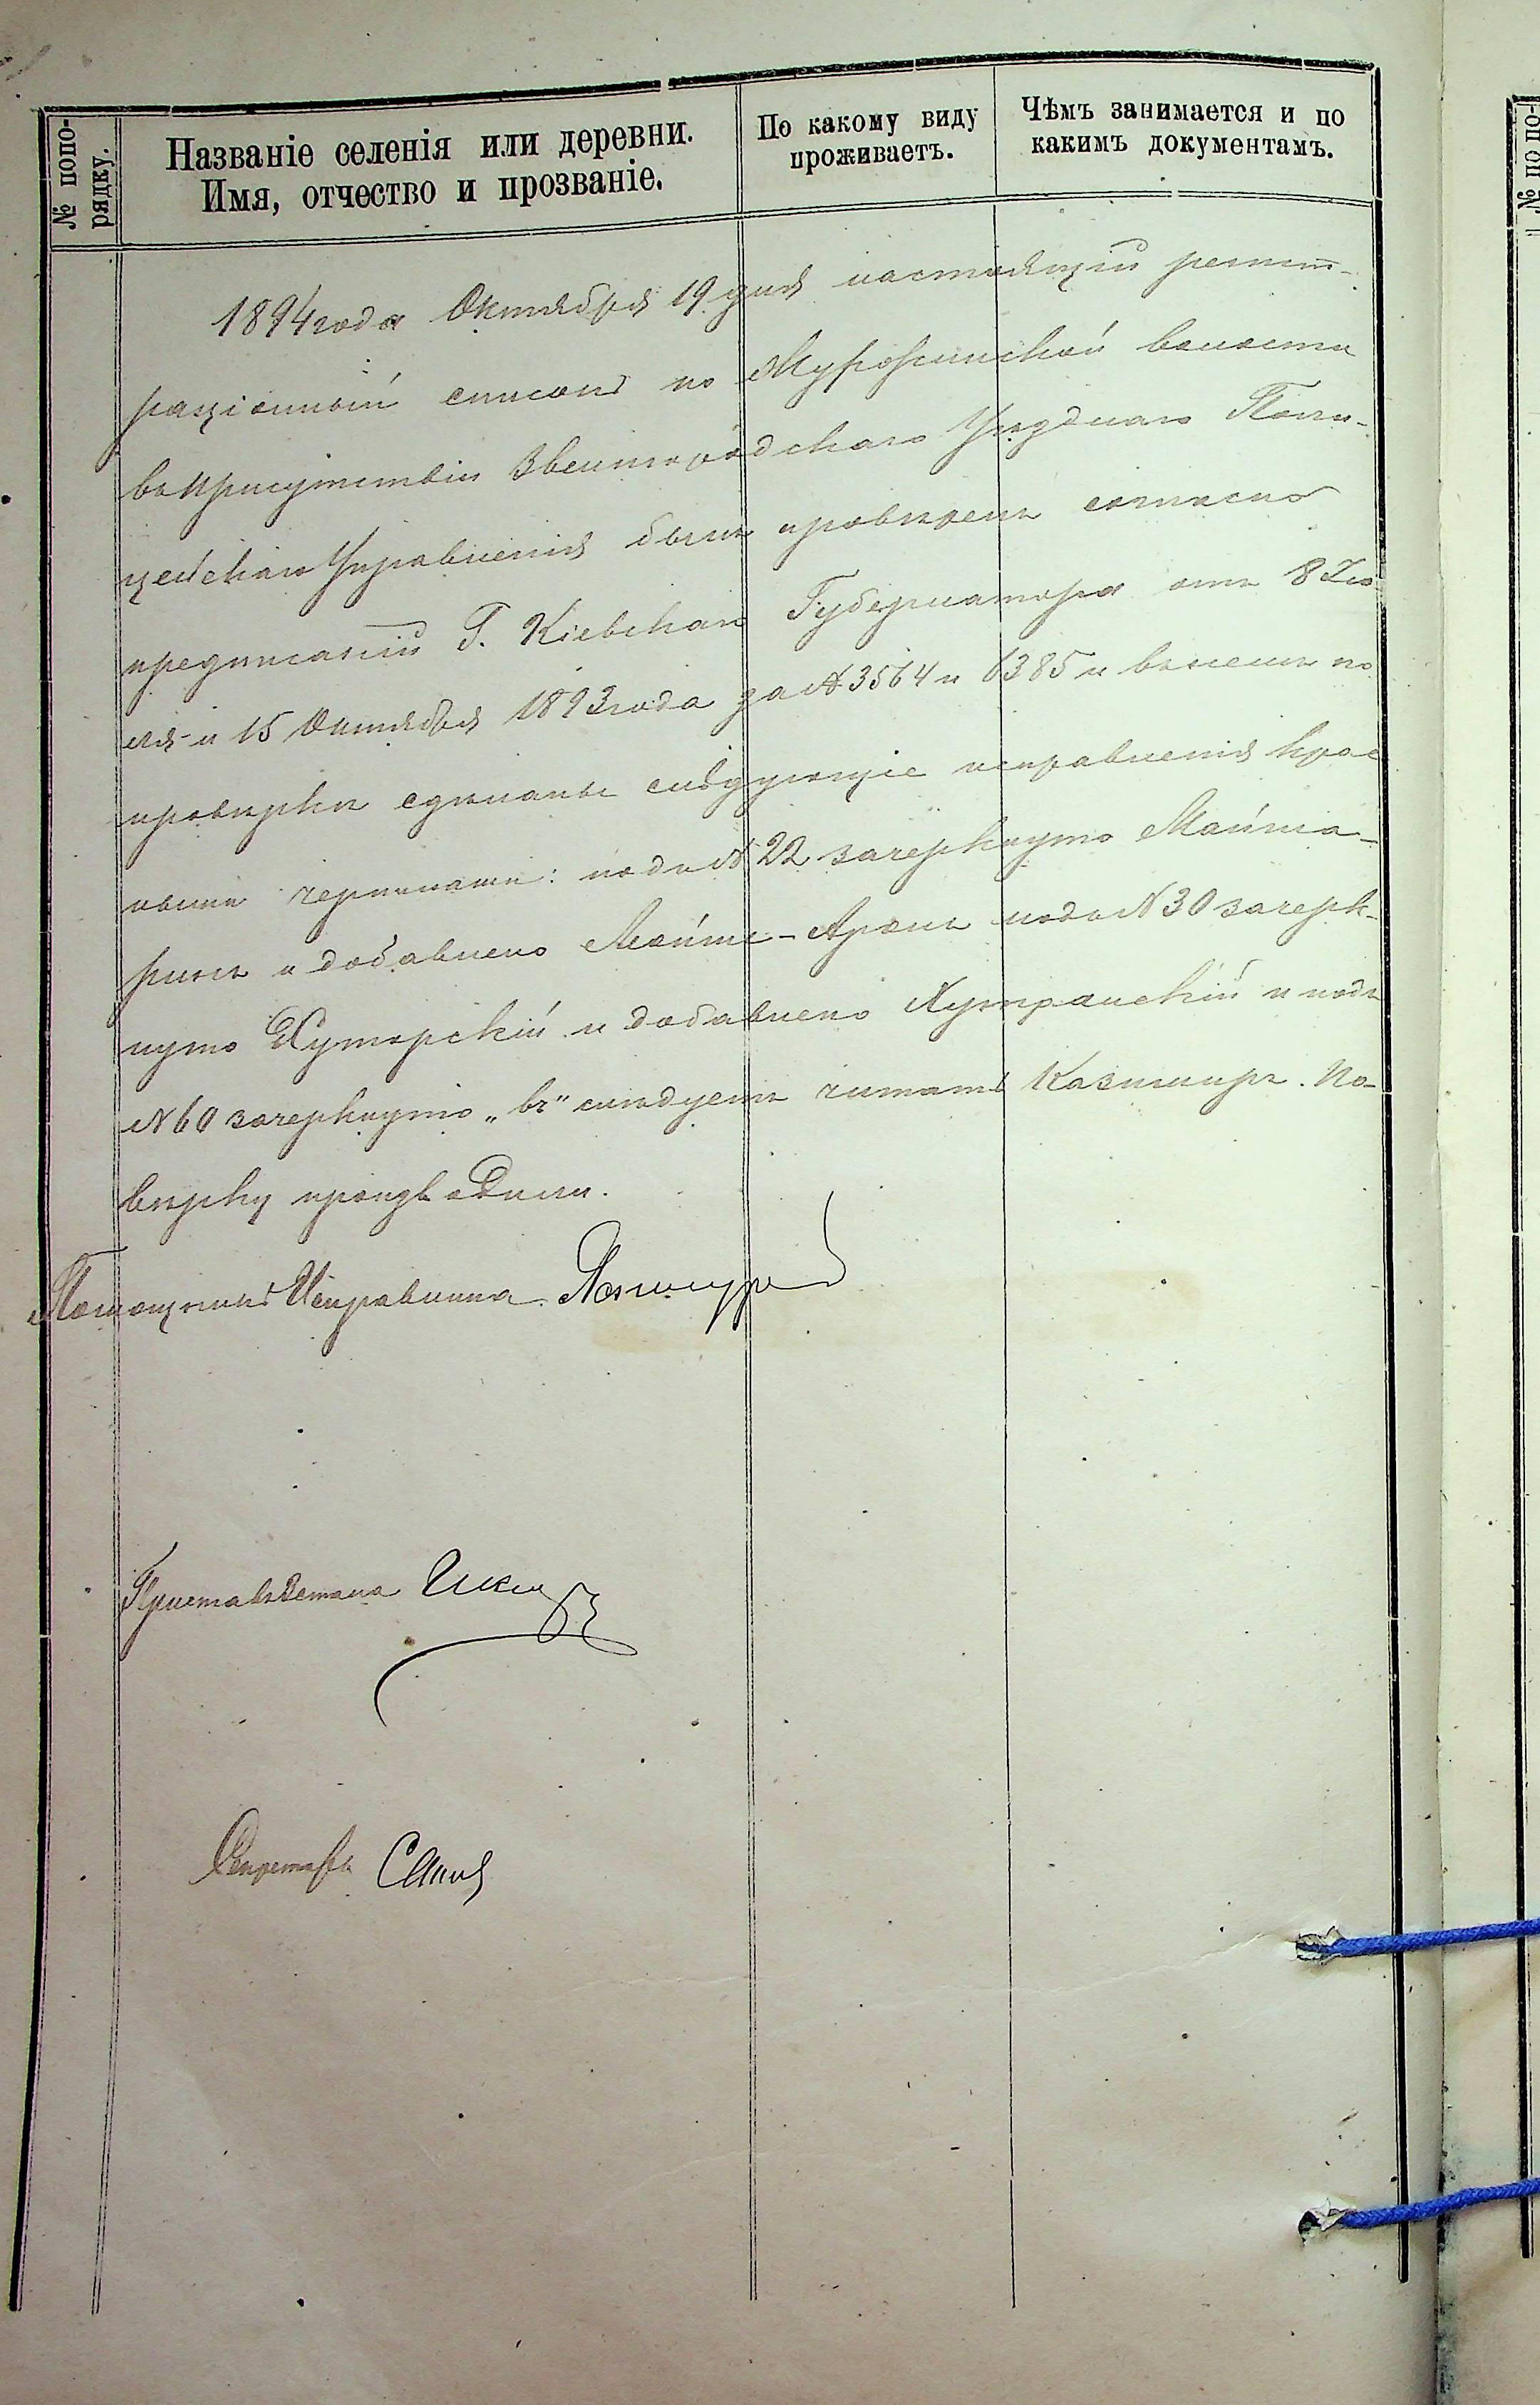 № попо-
рядку.
Названіе селенія или деревни.
Имя, отчество и прозваніе.
По какому виду
проживаетъ.
Чѣмъ занимается и по
какимъ документамъ.
№ по по-
1894 года Октября 19 дня настоящій регист-
раціонный списокъ по волости
въ присутствіи Звенигородскаго Уѣзднаго Поли-
цейскаго Управленія былъ провѣренъ согласно
предписаній Г. Кіевскаго Губернатора отъ 8 Ію
ля и 15 Октября 1893 года за № 3564 и 6385 и въ немъ по
провѣркѣ сдѣланы слѣдующіе исправленія крас
ными чернилами: подъ № 22 зачеркнуто
и добавлено Аронъ подъ № 30 зачерк-
нуто Хуторскій и добавлено Хуторанскій и подъ
№ 60 зачеркнуто „въ" слѣдуетъ читать Казимиръ. По-
вѣрку производили.
Помощникъ Исправника
Приставъ 2 стана
Секретарь